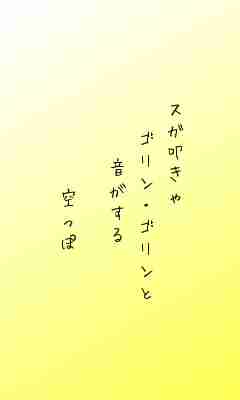 スが叩きゃ
ゴリン・ゴリンと
音がする
空っぽ